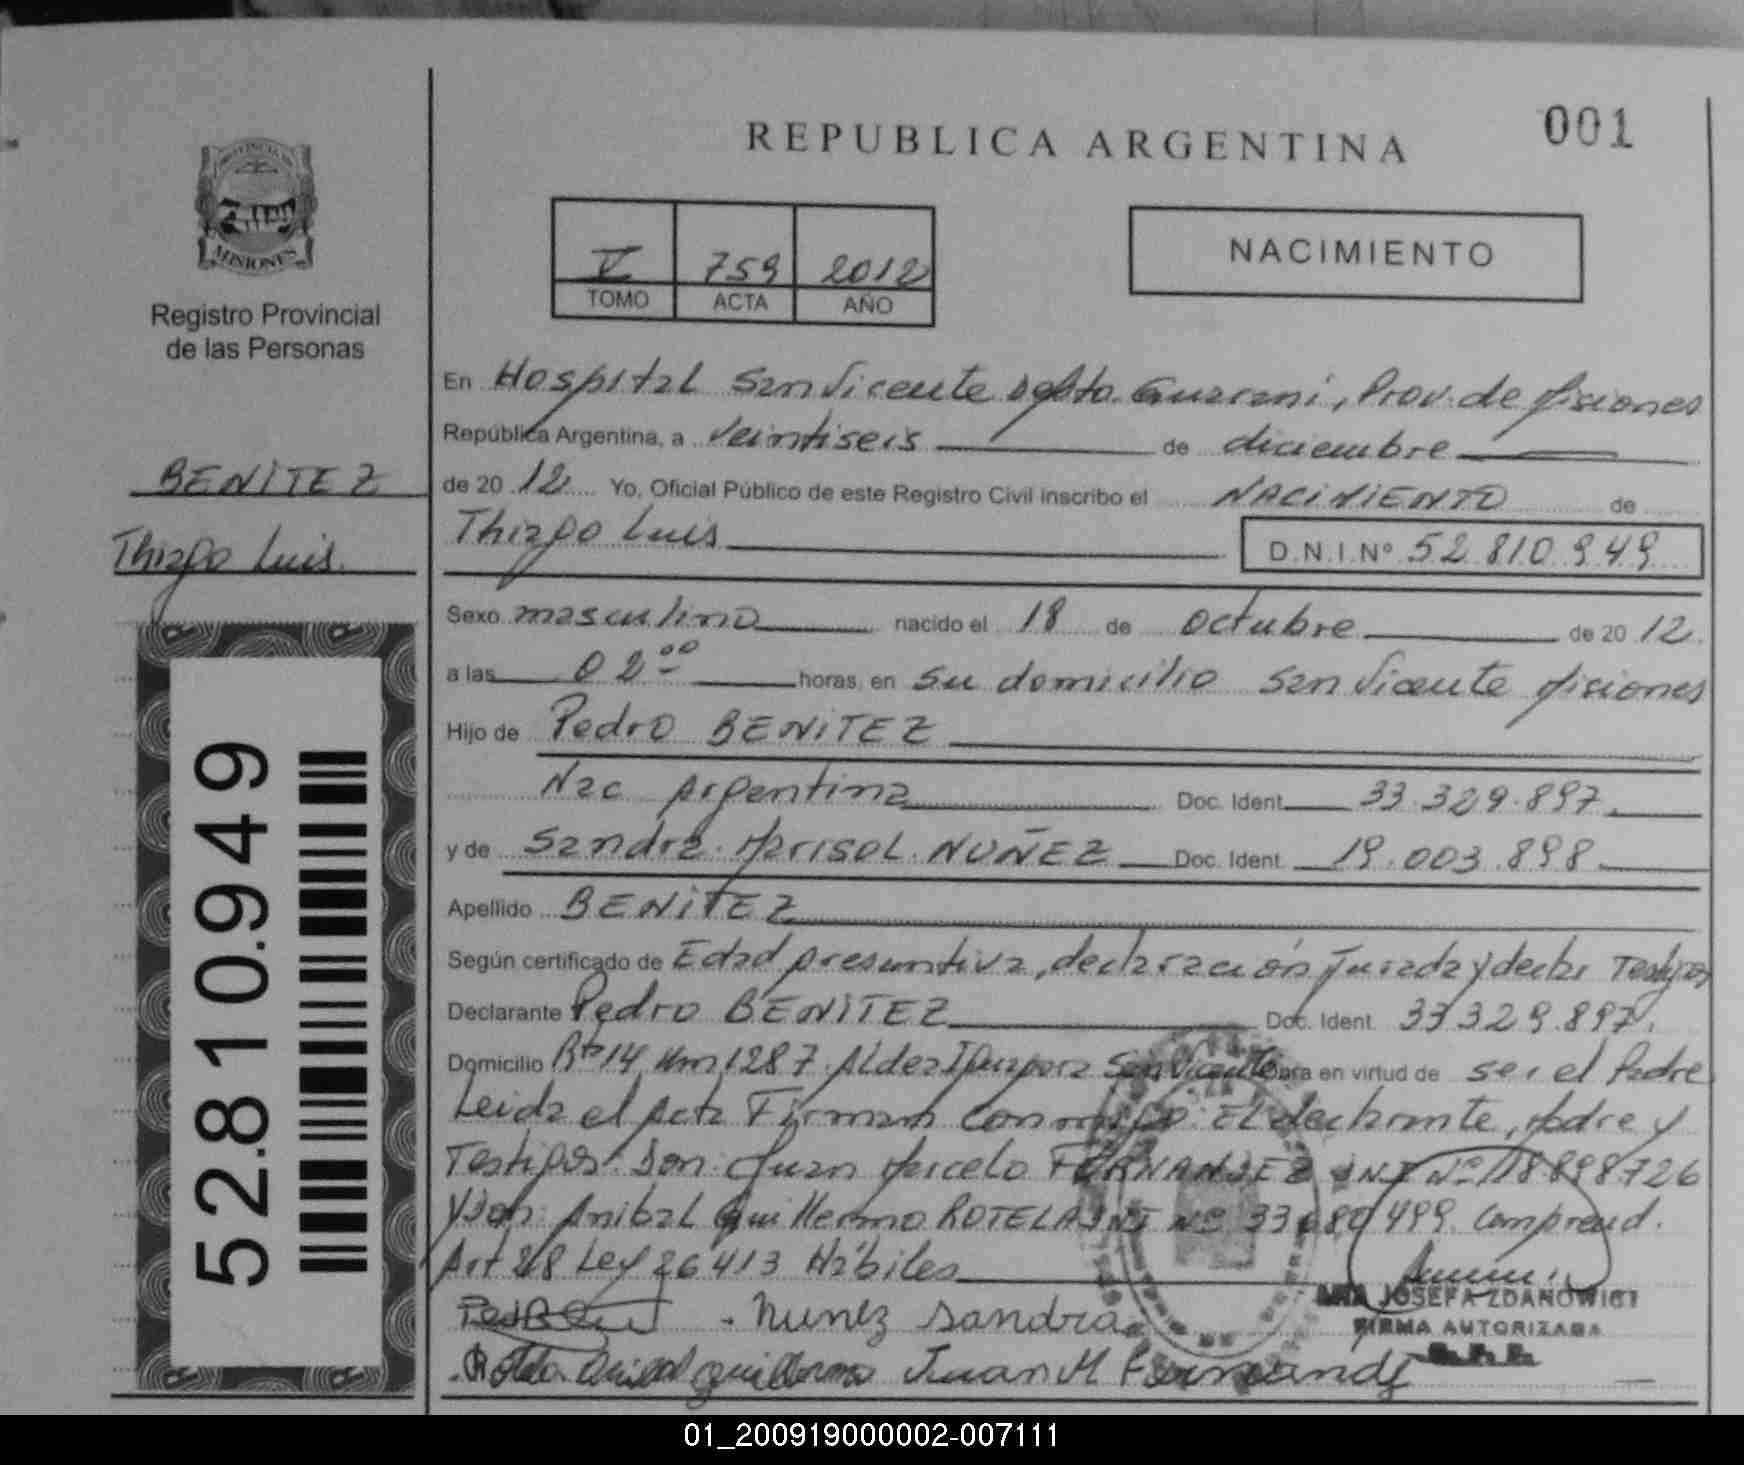 001
REPUBLICA ARGENTINA
PROVINCIA DE
MISIONES
Registro Provincial
de las Personas
V 759 2012
TOMO ACTA AÑO
NACIMIENTO
BENITEZ
Thiago Luis.
52.810.949
En Hospital San Vicente Depto. Guarani, Prov. de Misiones
República Argentina, a veintiseis de diciembre
de 20 12 Yo, Oficial Público de este Registro Civil inscribo el NACIMIENTO de
Thiago Luis D.N.I.Nº 52.810.949
Sexo masculino nacido el 18 de octubre de 20 12
a las 02 00 horas, en su domicilio San Vicente Misiones
Hijo de Pedro BENITEZ
Nac Argentina Doc. Ident. 33.329.897
y de Sandra Marisol NUÑEZ Doc. Ident. 19.003.898
Apellido BENITEZ
Según certificado de Edad presuntiva, declaración Jurada y declar Testigos
Declarante Pedro BENITEZ Doc. Ident. 33329.897.
Domicilio Rta 14 Km 1287 Aldea San Vicente para en virtud de ser el Padre
Leida el Acta Firman conmigo: El declarante, Madre y
Testigos: Don: Juan Marcelo FERNANDEZ DNI Nº 18.898726
y Don: Anibal Guillermo ROTELA DNI Nº 33680499. Comprend.
Art 28 Ley 26413 Hábiles
Nunez Sandra
ANA JOSEFA ZDANOWICT
FIRMA AUTORIZADA
Anibal guillermo Juan M Fernandez
01_200919000002-007111